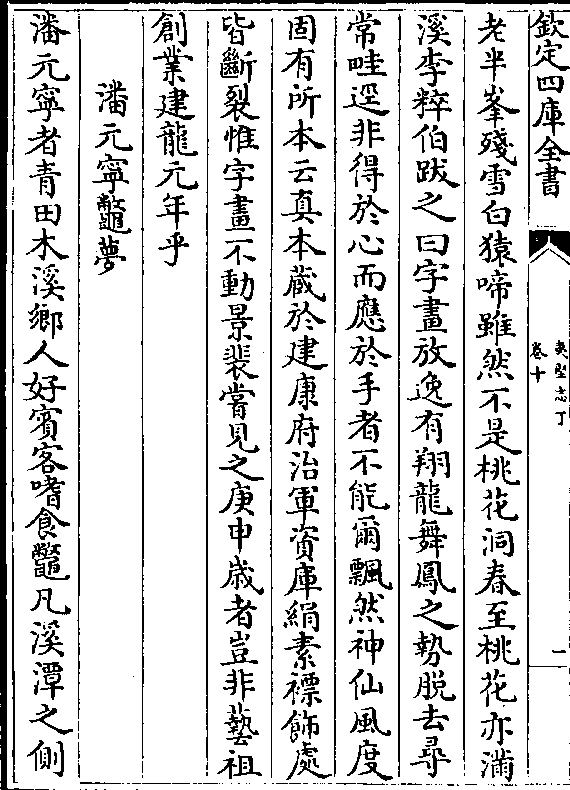 欽定四庫全書
夷堅志丁
卷十
一
老半峯殘雪白猿啼雖然不是桃花洞春至桃花亦滿
溪李粹伯跋之曰字畫放逸有翔龍舞鳳之勢脱去尋
常畦逕非得於心而應於手者不能爾飄然神仙風度
固有所本云真本藏於建康府治軍資庫絹素褾飾處
皆斷裂惟字畫不動景裴嘗見之庚申歲者豈非藝祖
創業建龍元年乎
潘元寧鼈夢
潘元寧者青田木溪鄉人好賓客嗜食鼈凡溪潭之側